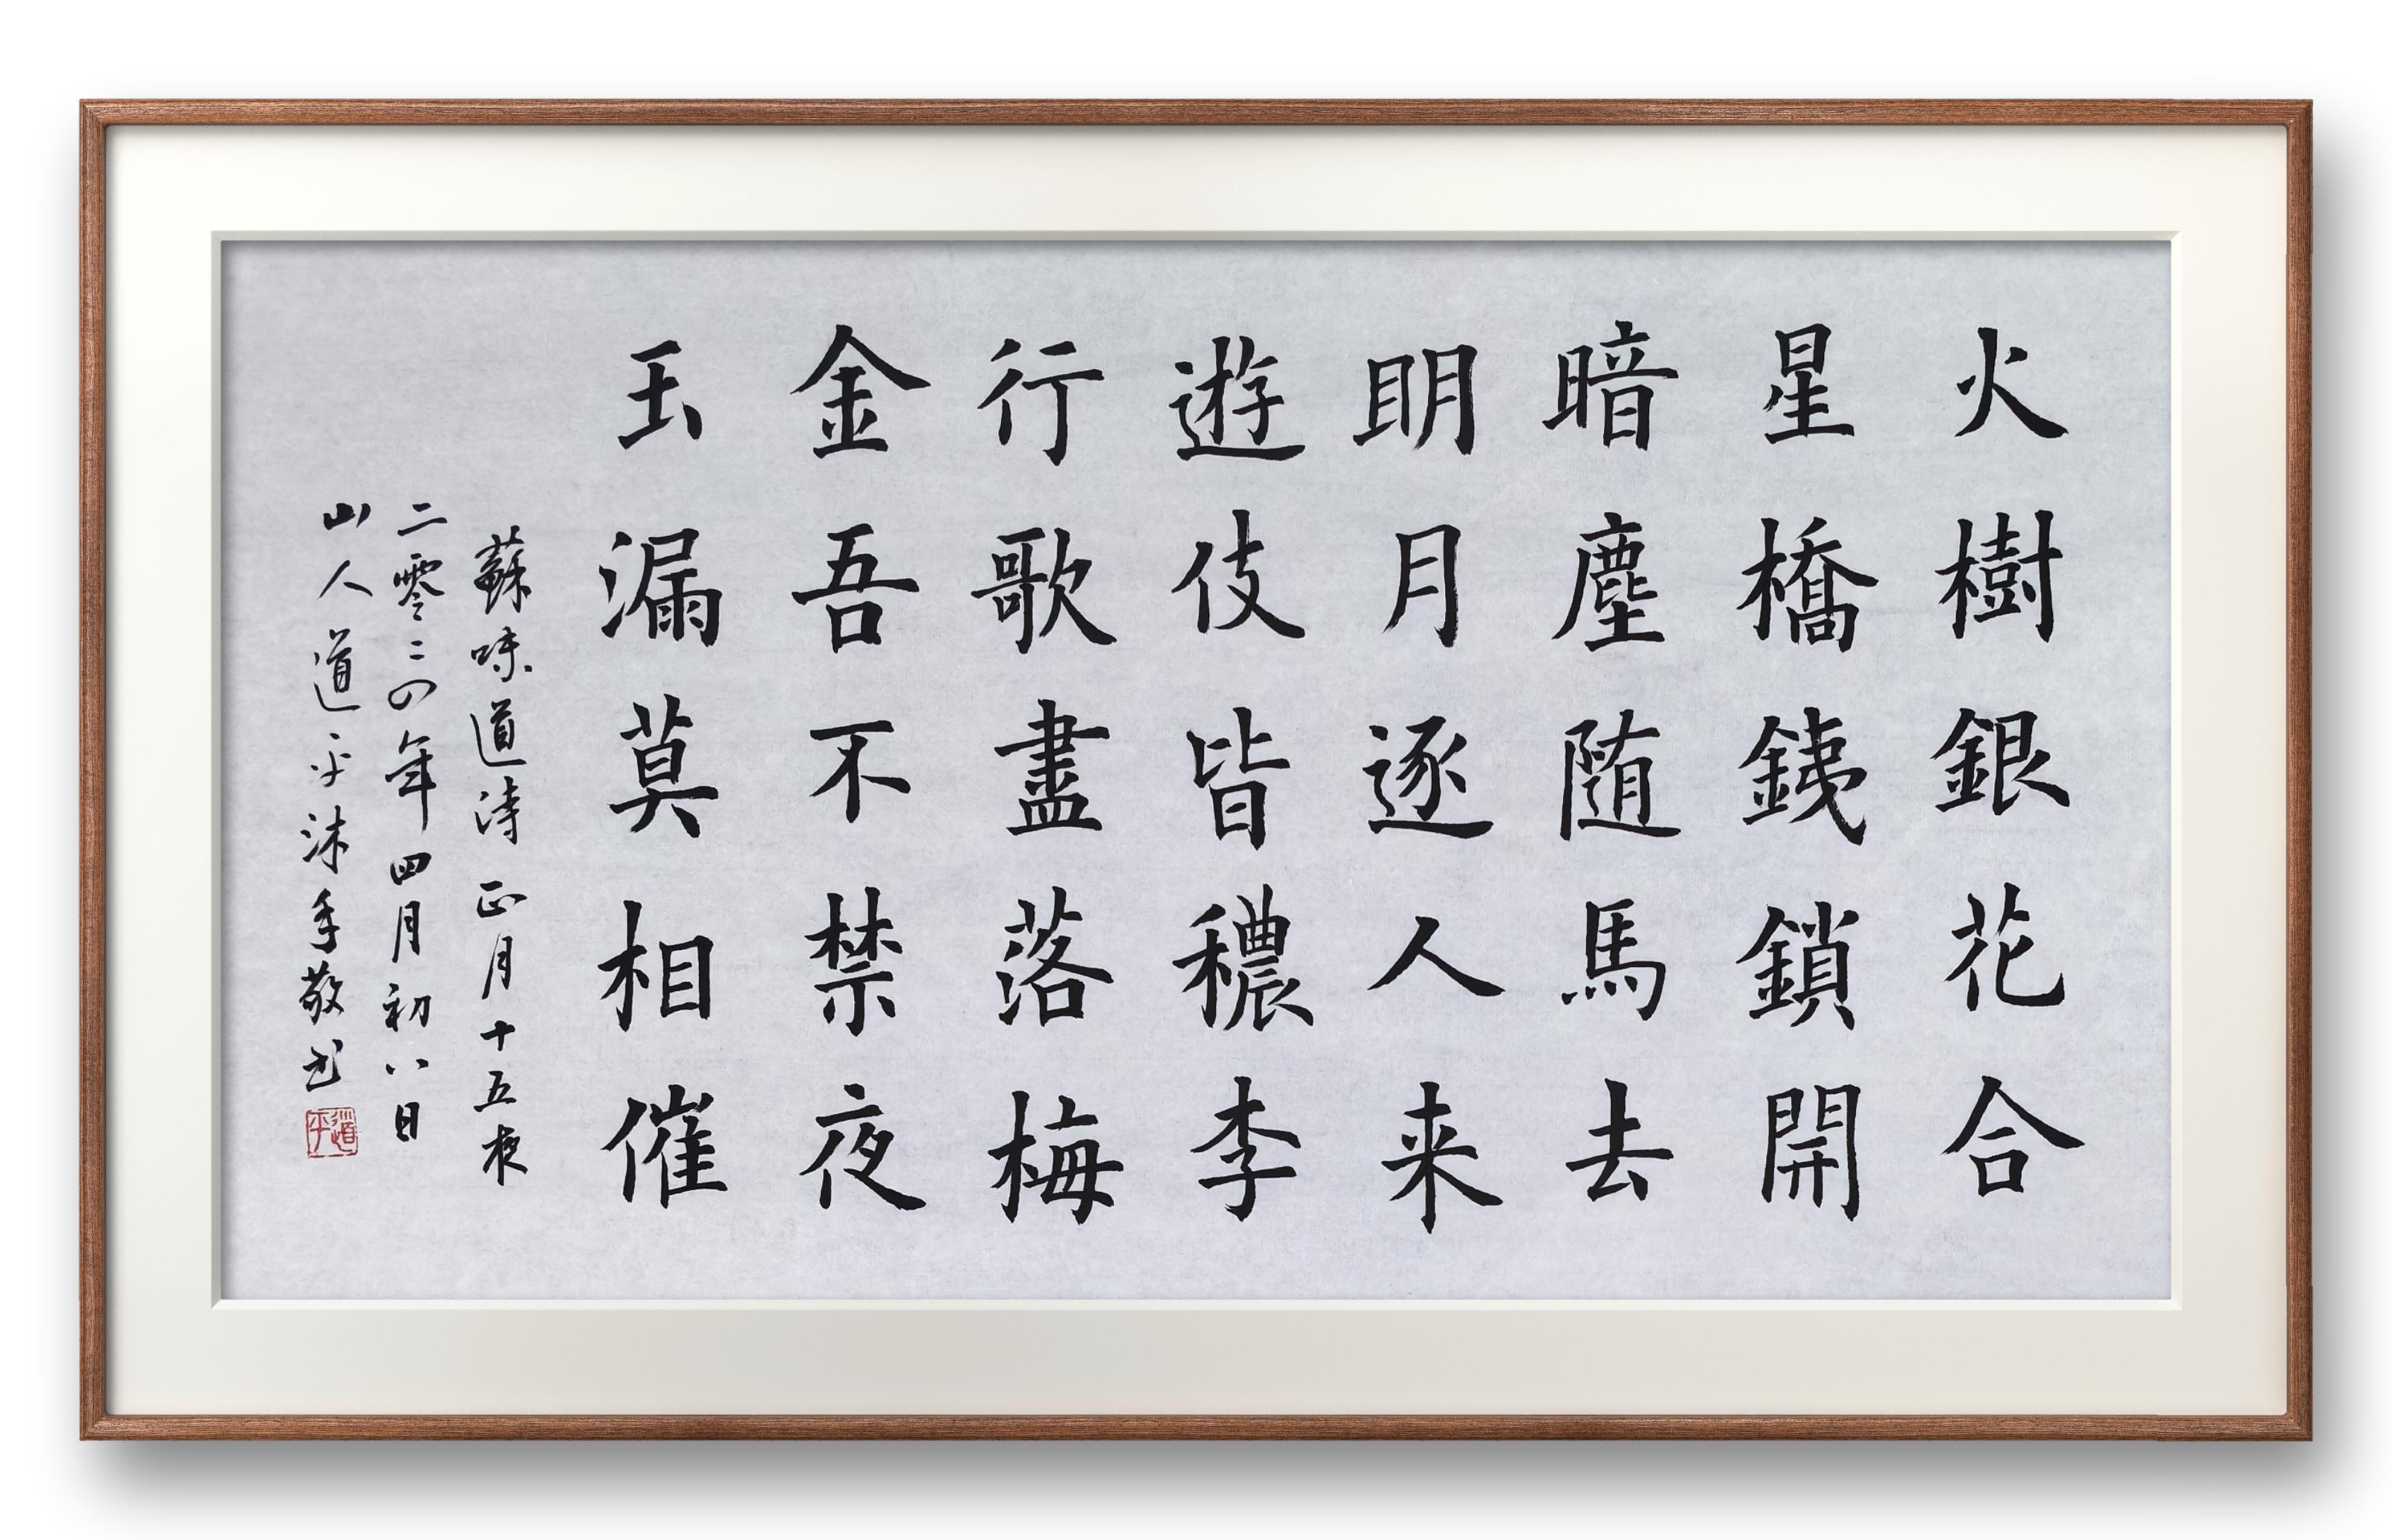 火樹銀花合
星橋銕鎖開
暗塵随馬去
明月逐人来
遊伎皆穠李
行歌盡落梅
金吾不禁夜
玉漏莫相催
蘇味道詩正月十五夜
二零二四年四月初八日
山人道平沐手敬书
道平